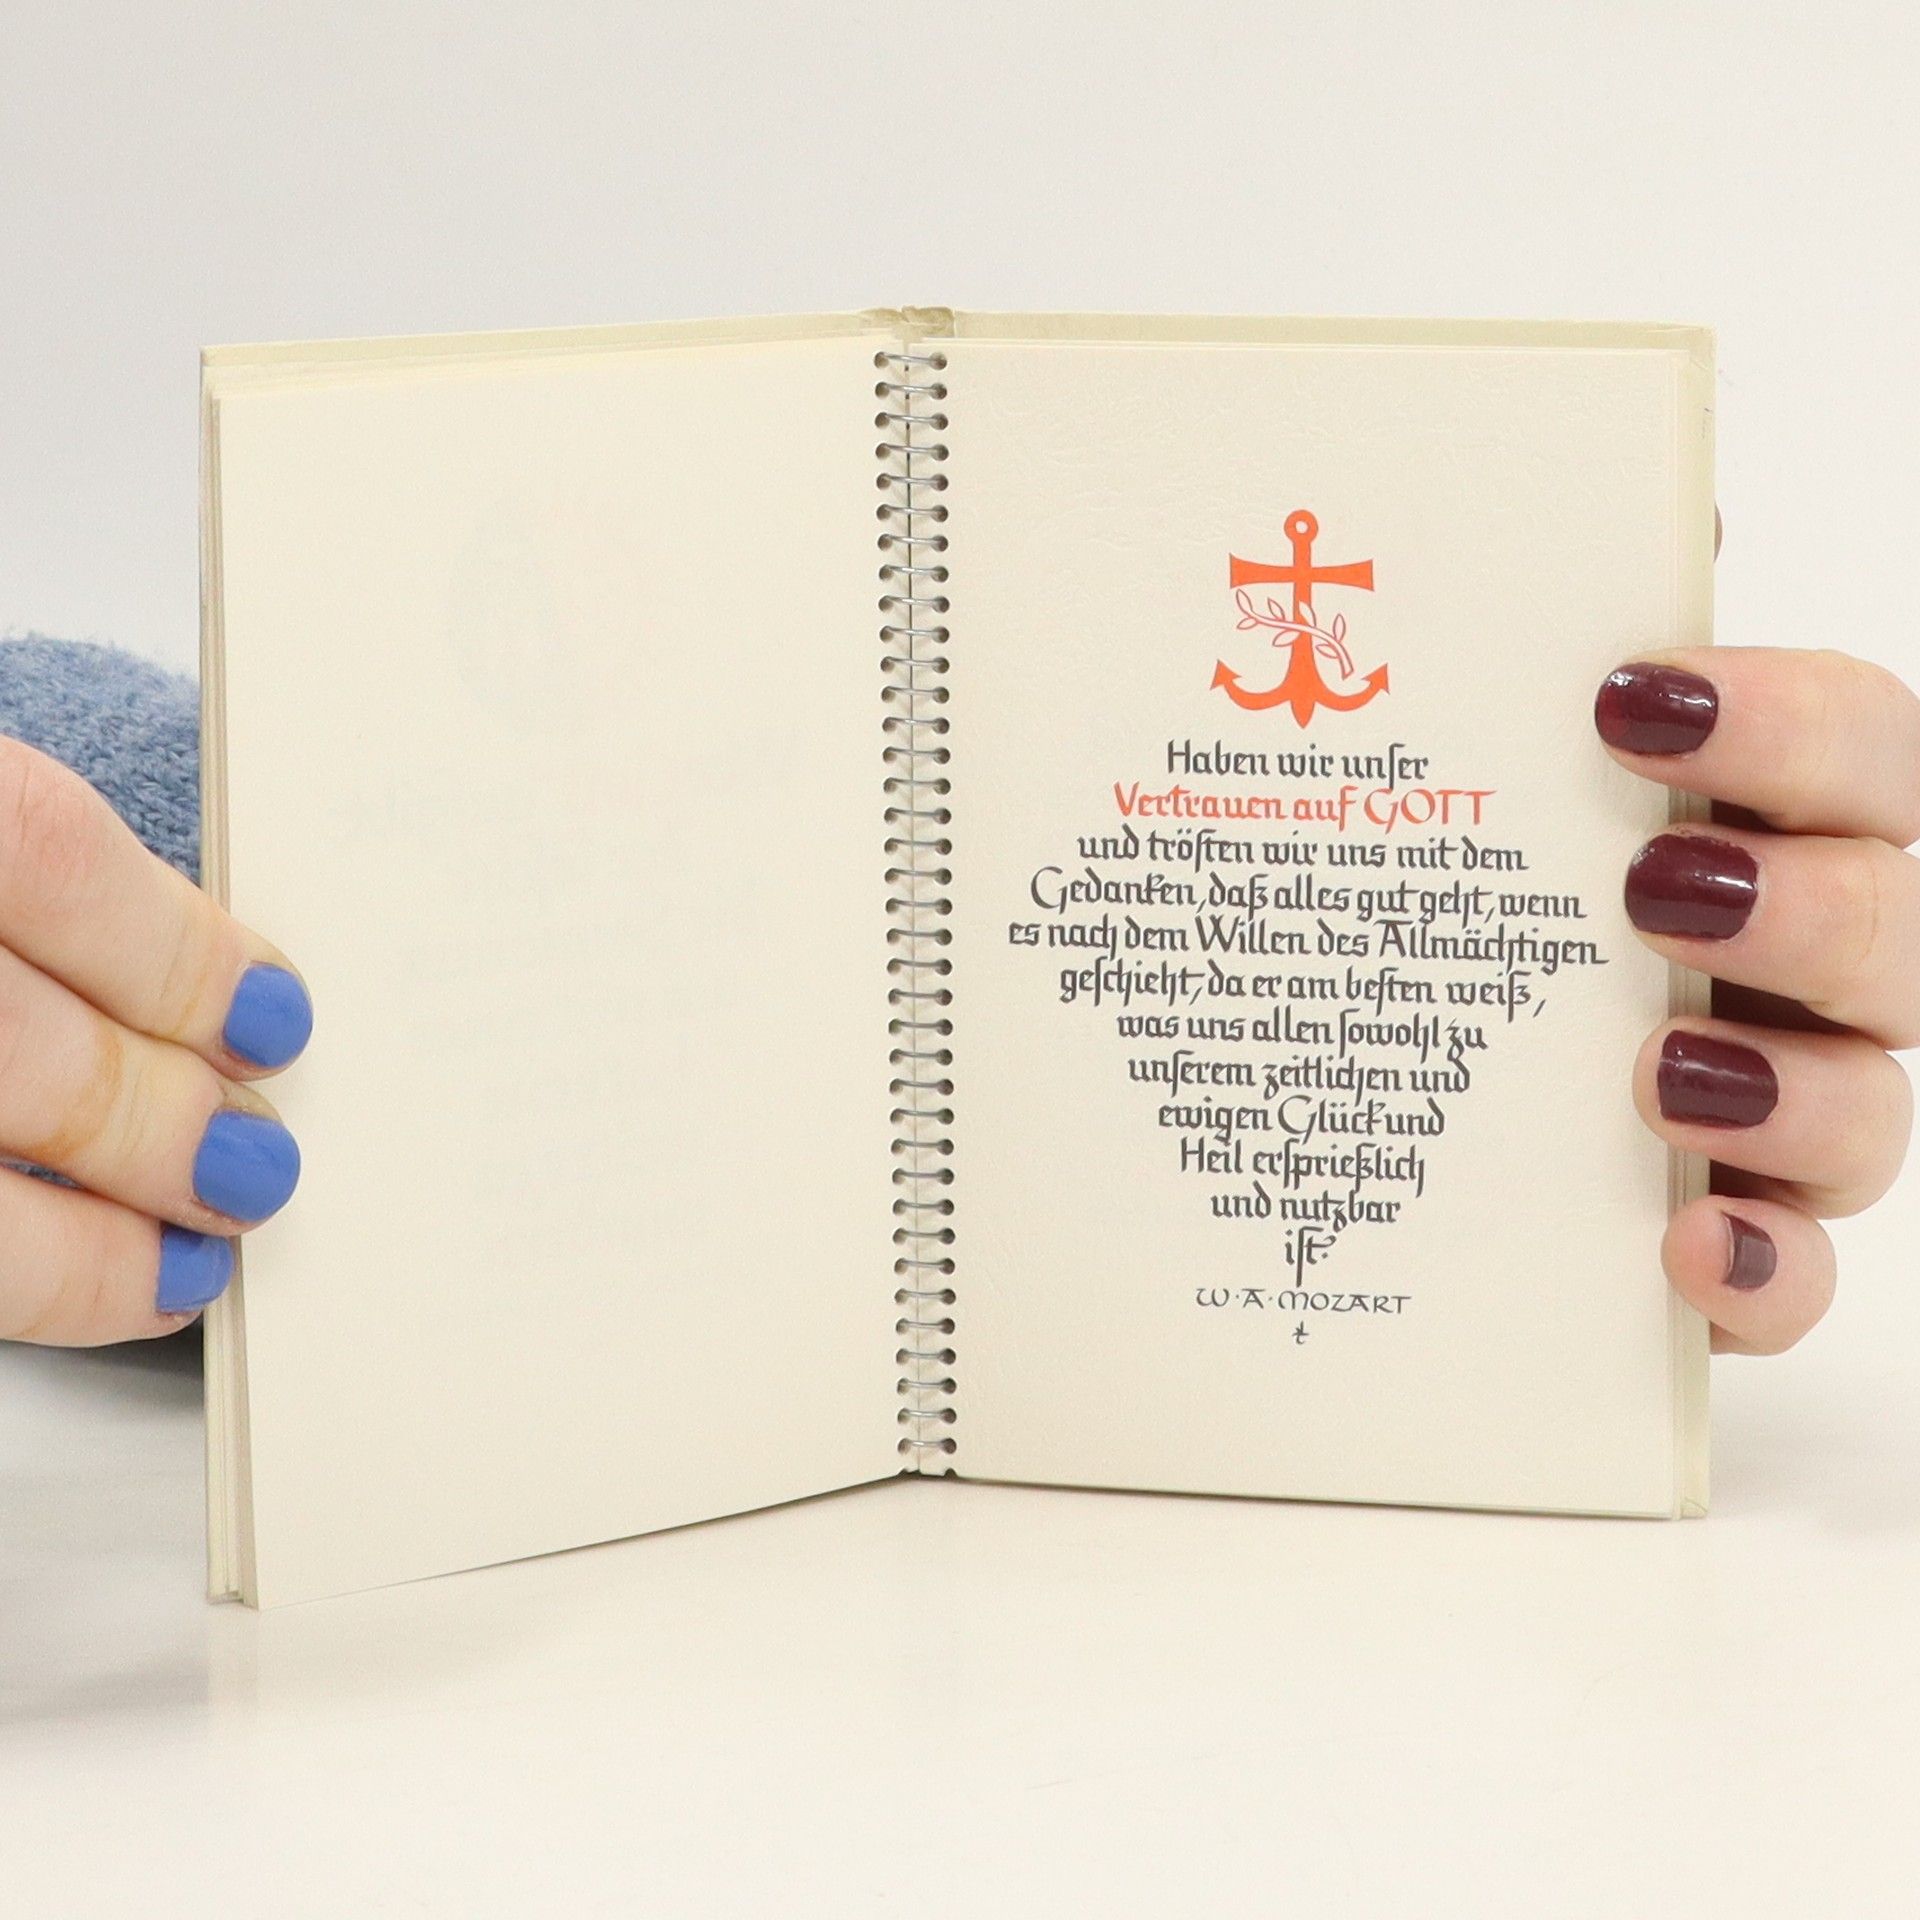 Haben wir unser
Vertrauen auf GOTT
und trösten wir uns mit dem
Gedanken, daß alles gut geht, wenn
es nach dem Willen des Allmächtigen
geschieht, da er am besten weiß,
was uns allen sowohl zu
unserem zeitlichen und
ewigen Glück und
Heil ersprießlich
und nutzbar
ist.
W·A·MOZART